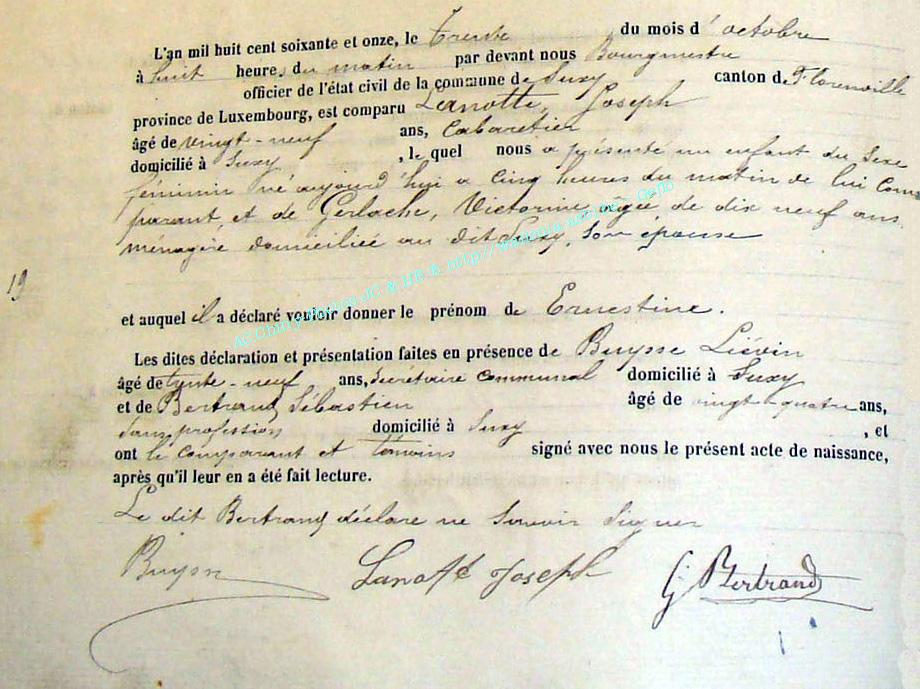 L'an mil huit cent soixante et onze, le trente du mois d'octobre
à huit heures du matin par devant nous Bourgmestre
officier de l'état civil de la commune de Suxy canton de Florenville
province de Luxembourg, est comparu Lanotte, Joseph
âgé de vingt-neuf ans, Cabaretier
domicilié à Suxy, le quel nous a présenté un enfant du Sexe
féminin né aujourd'hui a cinq heures du matin de lui Com
parant et de Gerlache, Victorine âgée de dix neuf ans
ménagère domiciliée au dit Suxy, Son epouse
19
et auquel il a déclaré vouloir donner le prénom de Ernestine.
Les dites déclaration et présentation faites en présence de Buysse Liévin
âgé de trente-neuf ans, Secrétaire Communal domicilié à Suxy
et de Bertrand Sébastien âgé de vingt-quatre ans,
Sans profession domicilié à Suxy, et
ont le Comparant et témoins signé avec nous le présent acte de naissance,
après qu'il leur en a été fait lecture.
Le dit Bertrand déclare ne Savoir Signer
Buysse Lanotte Joseph G Bertrand